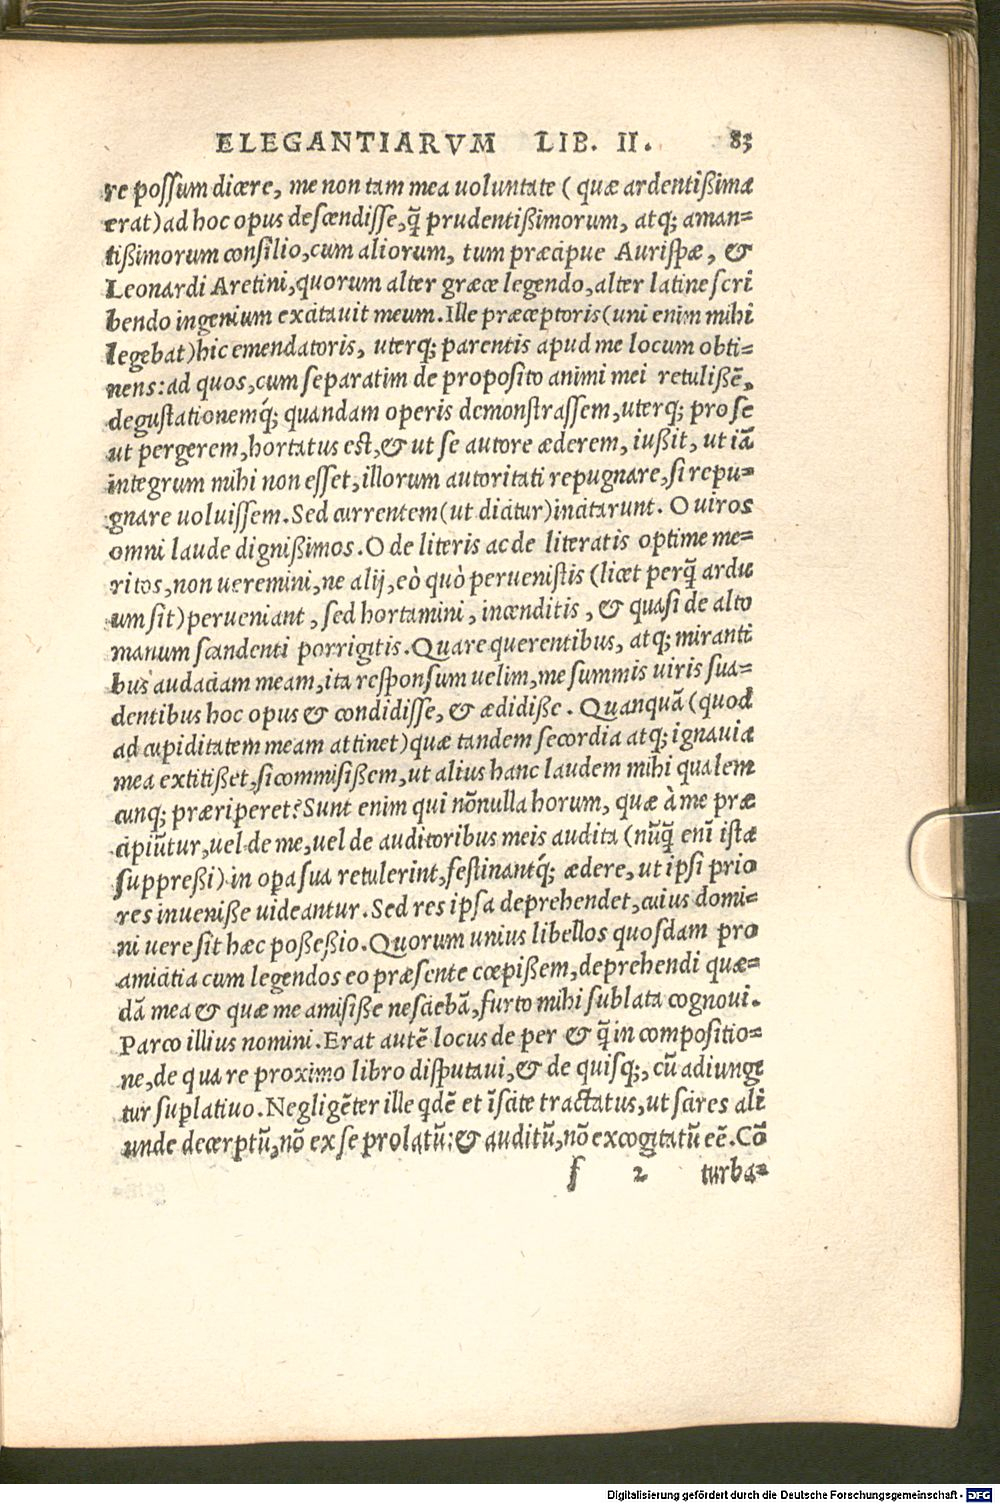 ELEGANTIARVM LIB. II. 83
re possum dicere, me non tam mea uoluntate (quæ ardentißima
erat) ad hoc opus descendisse, q̃ prudentißimorum, atq; aman=
tißimorum consilio, cum aliorum, tum præcipue Aurispæ, &
Leonardi Aretini, quorum alter græce legendo, alter latine scri
bendo ingenium excitauit meum. Ille præceptoris (uni enim mihi
legebat) hic emendatoris, uterq; parentis apud me locum obti=
nens: ad quos, cum separatim de proposito animi mei retulißẽ,
degustationemq́; quandam operis demonstrassem, uterq; pro se
ut pergerem, hortatus est, & ut se autore æderem, iußit, ut iã
integrum mihi non esset, illorum autoritati repugnare, si repu=
gnare uoluissem. Sed currentem (ut dicitur) incitarunt. O uiros
omni laude dignißimos. O de literis ac de literatis optime me=
ritos, non ueremini, ne alij, eò quò peruenistis (licet perq̃ ardu
um sit) perueniant, sed hortamini, incenditis, & quasi de alto
manum scandenti porrigitis. Quare querentibus, atq; miranti
bus audaciam meam, ita responsum uelim, me summis uiris sua=
dentibus hoc opus & condidisse, & ædidiße. Quanquã (quod
ad cupiditatem meam attinet) quæ tandem secordia atq; ignauia
mea extitißet, si commisißem, ut alius hanc laudem mihi qualem
cunq; præriperet? Sunt enim qui nõnulla horum, quæ à me præ
cipiũtur, uel de me, uel de auditoribus meis audita (nũq̃ enĩ istæ
suppreßi) in opera sua retulerint, festinantq́; ædere, ut ipsi prio
res inueniße uideantur. Sed res ipsa deprehendet, cuius domi=
ni uere sit hæc poßeßio. Quorum unius libellos quosdam pro
amicitia cum legendos eo præsente cœpißem, deprehendi quæ=
dã mea & quæ me amisiße nesciebã, furto mihi sublata cognoui.
Parco illius nomini. Erat autẽ locus de per & q̃ in compositio=
ne, de qua re proximo libro disputaui, & de quisq;, cũ adiunge
tur suplatiuo. Negligẽter ille qdẽ et ĩscite tractatus, ut scires ali
unde decerptũ, nõ ex se prolatũ: & auditũ, nõ excogitatũ eẽ. Cõ
f 2 turba=
Digitalisierung gefördert durch die Deutsche Forschungsgemeinschaft - DFG